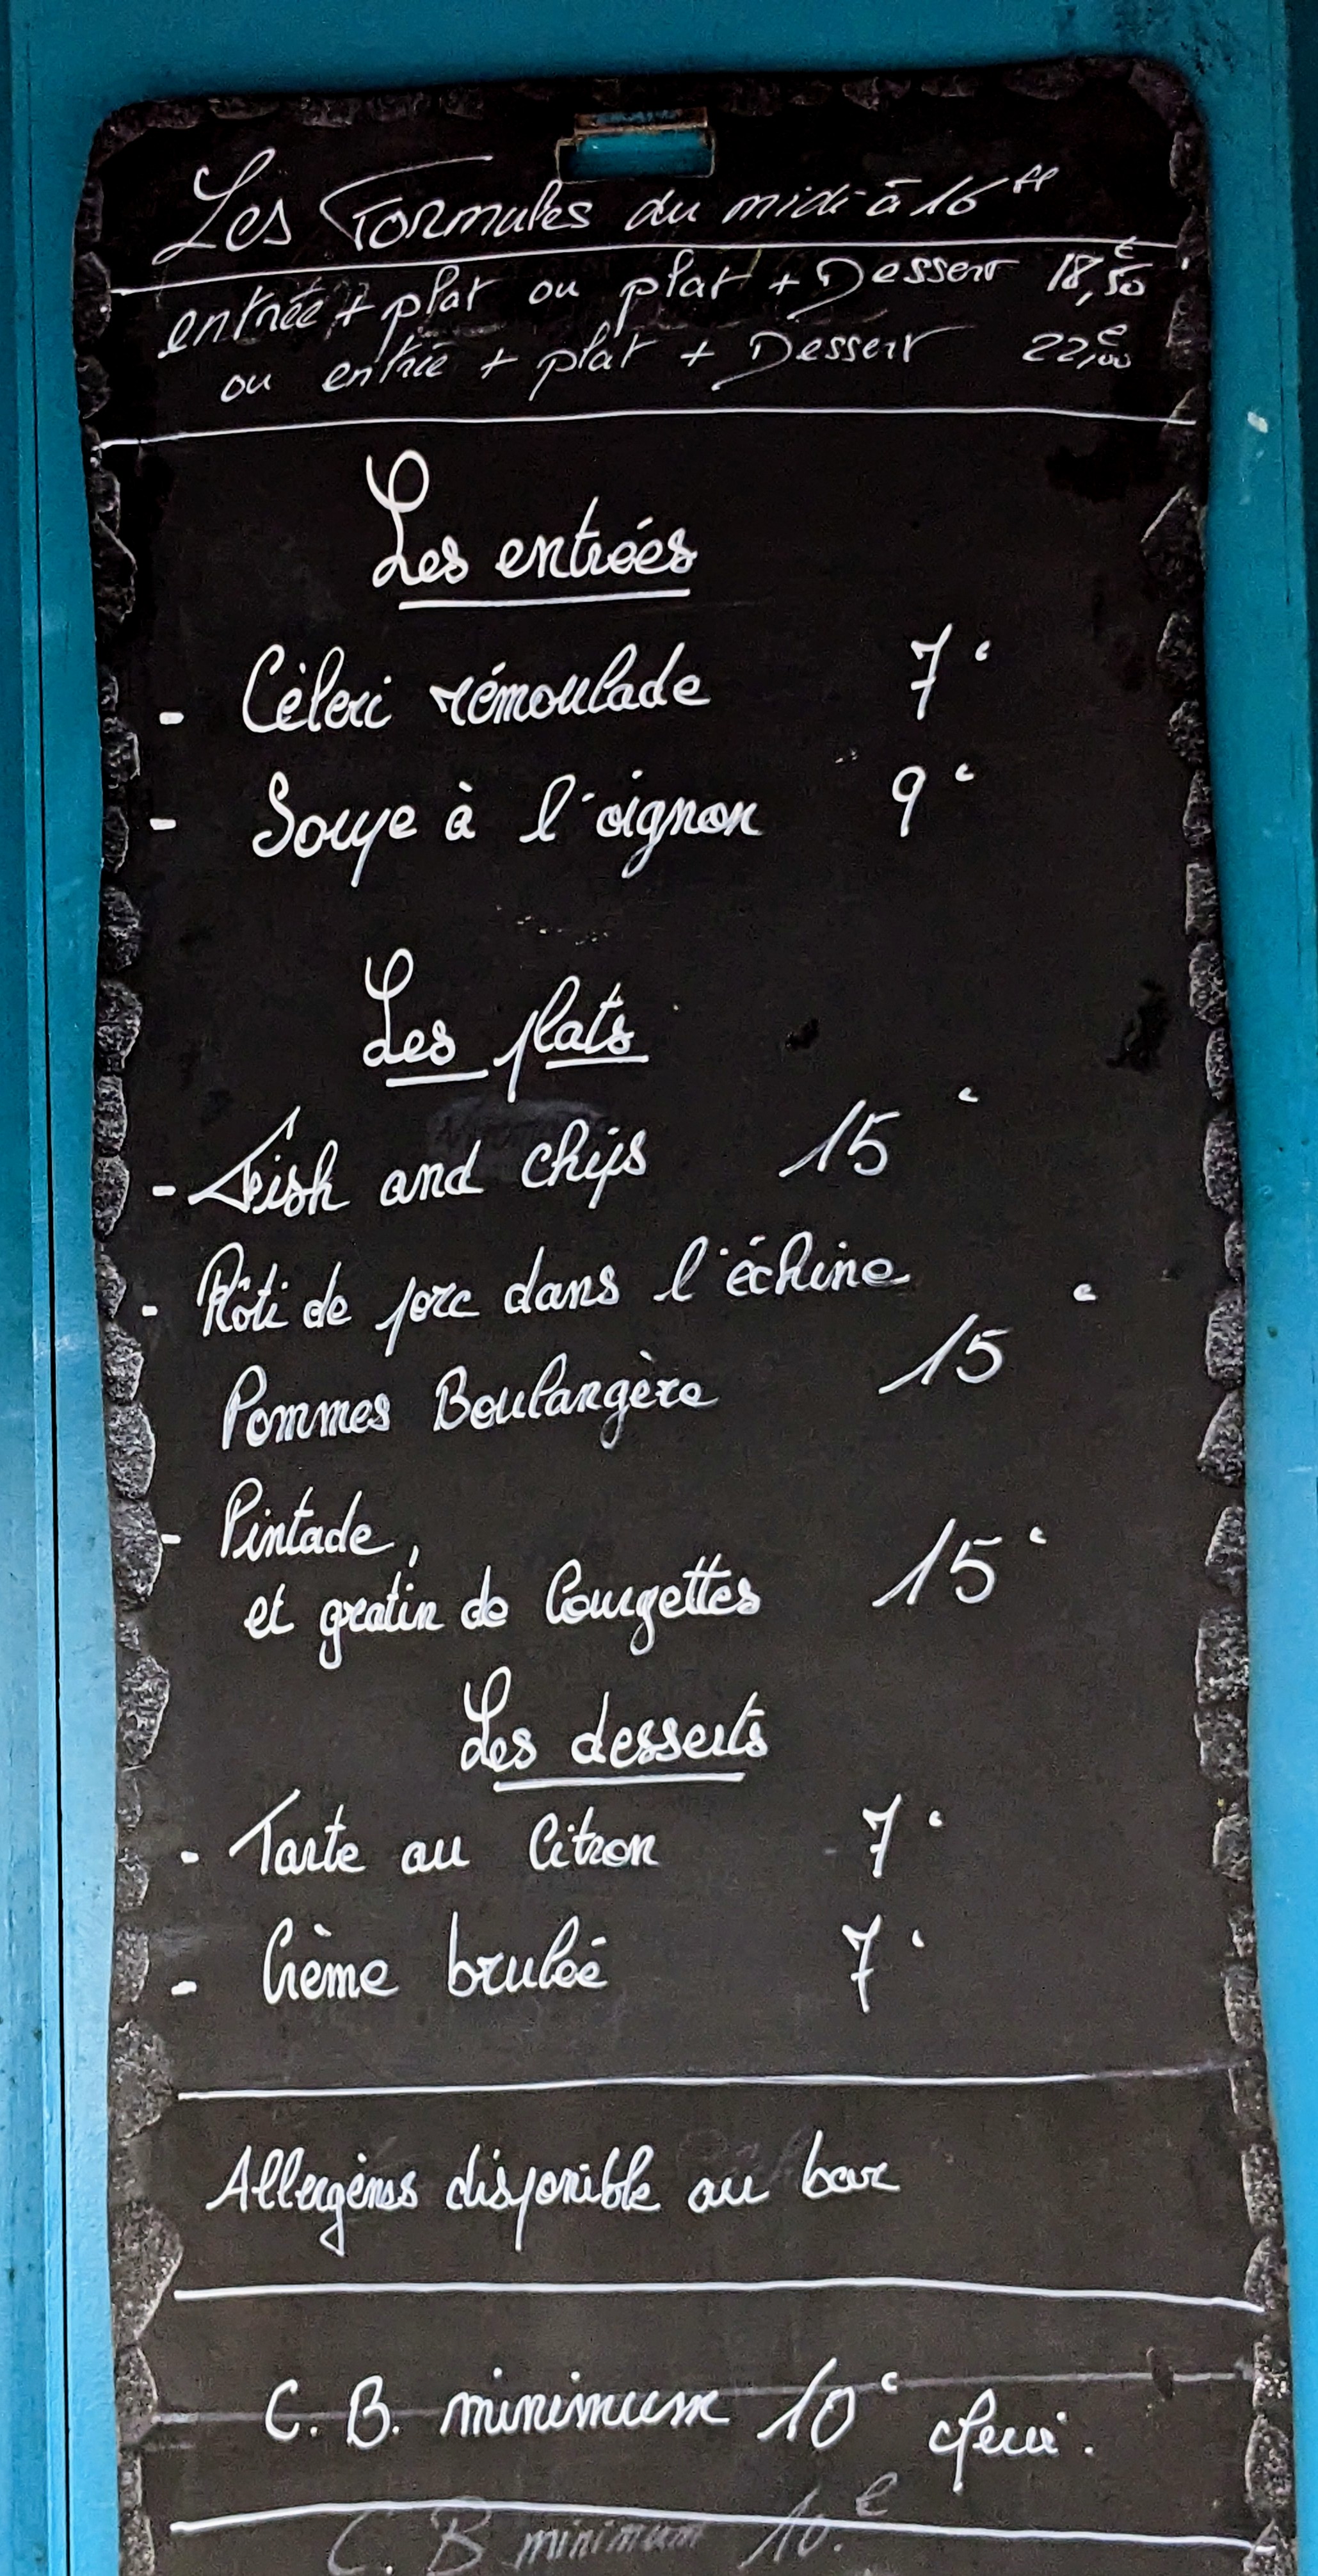 Les Formules du midi à 16
entrée + plat ou plat + Dessert 18,50€
ou entrée + plat + Dessert 22,00€
Les entrées
- Céleri rémoulade 7€
- Soupe à l'oignon 9€
Les plats
- Fish and chips 15€
- Rôti de porc dans l'échine
Pommes Boulangère 15€
- Pintade,
et gratin de Courgettes 15€
Les desserts
- Tarte au Citron 7€
- Crème brulée 7€
Allergènes disponible au bar
C. B. minimum 10€
C. B minimum 10.€